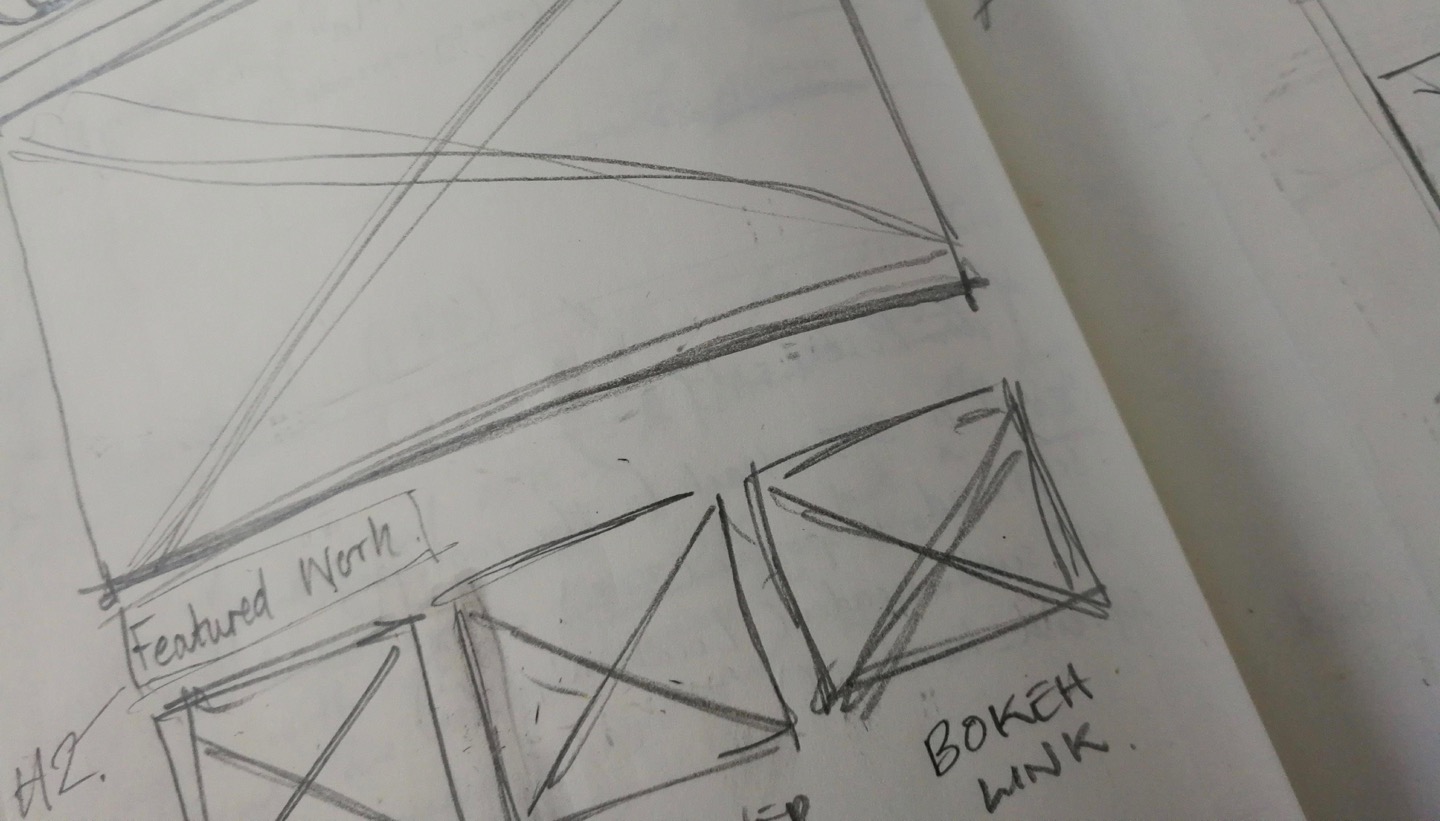 Featured Work.
H2.
BOKEH
LINK.